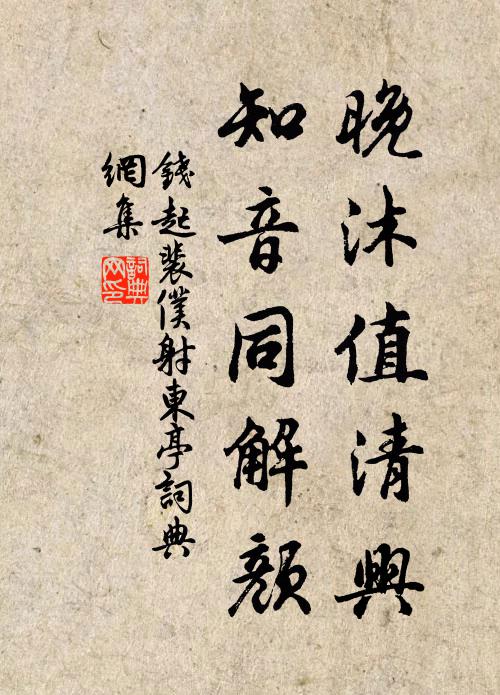 晚沐值清興
知音同解顏
錢起裴僕射東亭詞典
網集
詞典
網印